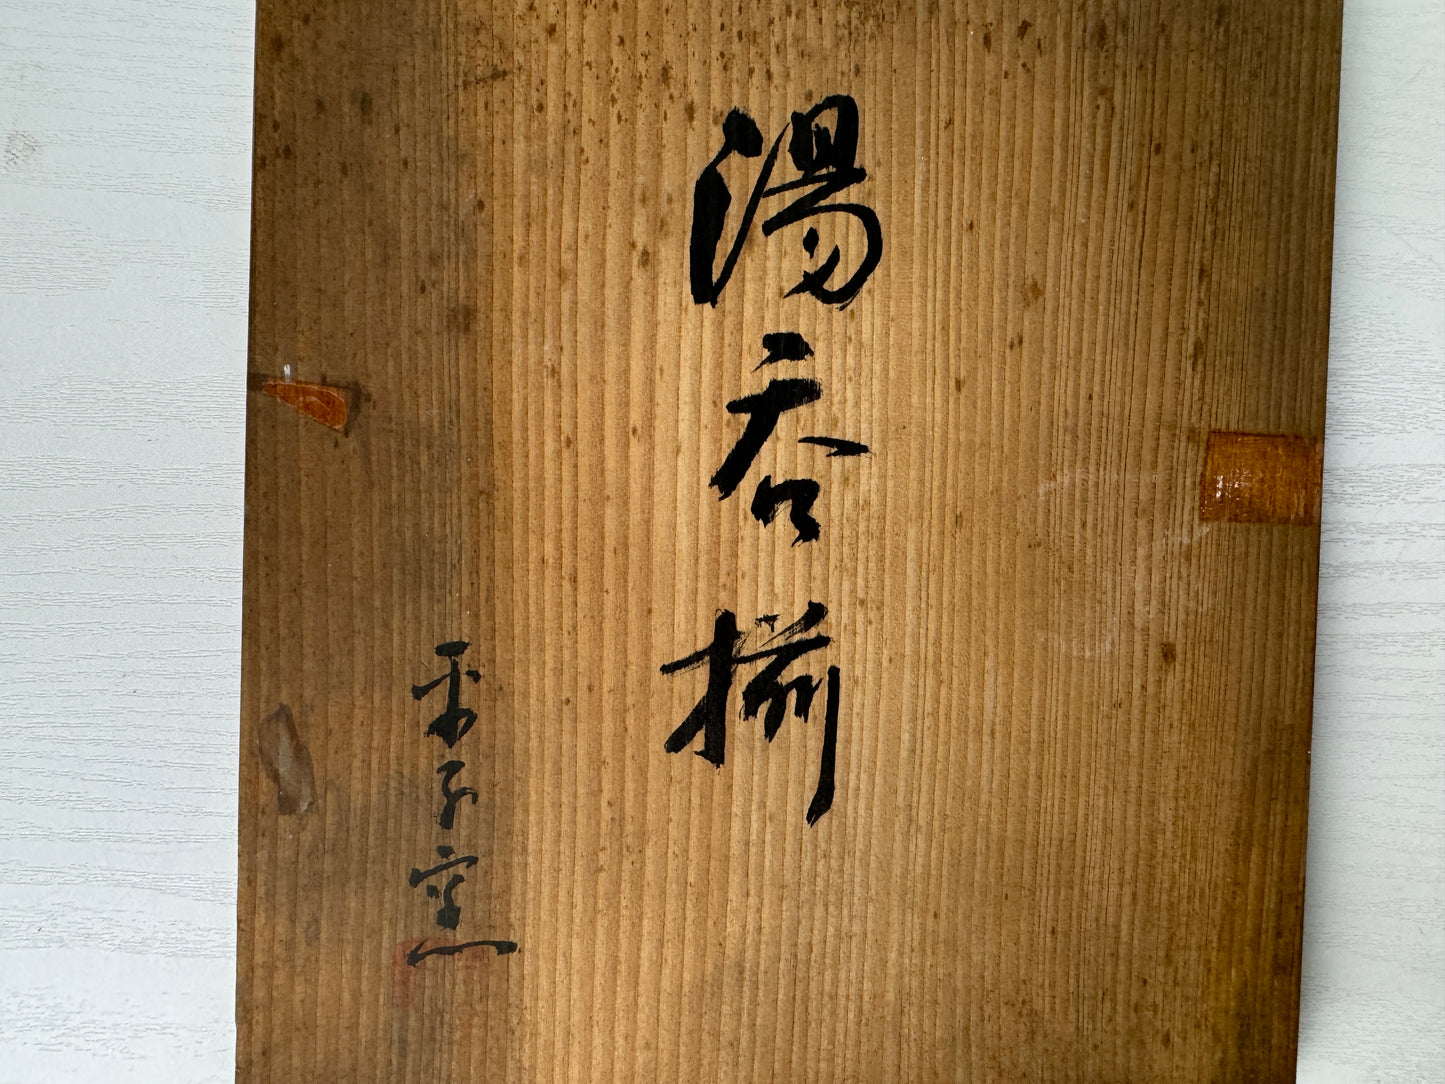 湯呑揃
平子窯